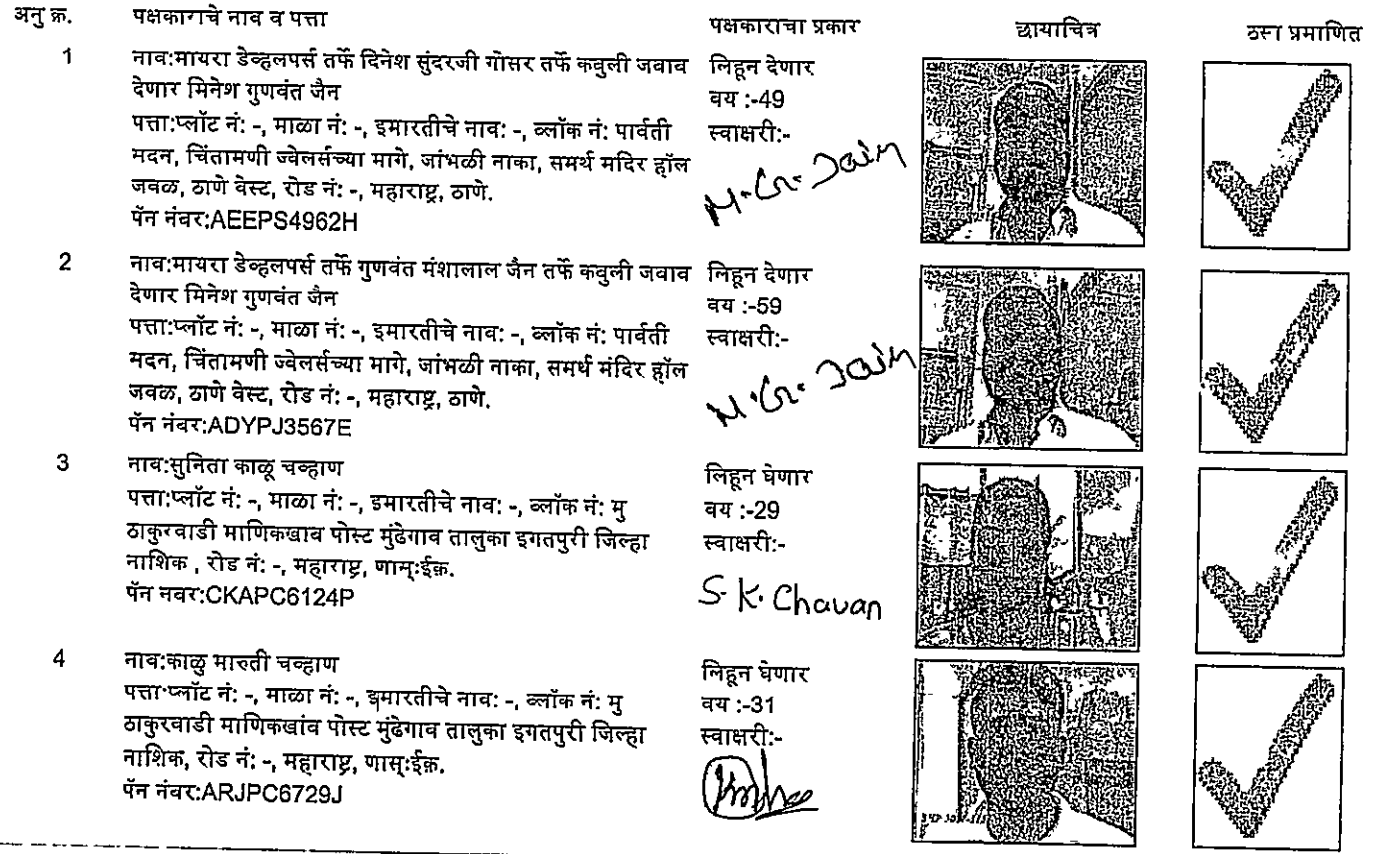 अनु क्र. पक्षकाराचे नाव व पत्ता पक्षकाराचा प्रकार छायाचित्र ठसा प्रमाणित
1 नाव:मायरा डेव्हलपर्स तर्फे दिनेश सुंदरजी गोसर तर्फे कबुली जवाब
देणार मिनेश गुणवंत जैन
पत्ता:प्लॉट नं: -, माळा नं: -, इमारतीचे नाव: -, ब्लॉक नं: पार्वती
मदन, चिंतामणी ज्वेलर्सच्या मागे, जांभळी नाका, समर्थ मदिर हॉल
जवळ, ठाणे वेस्ट, रोड नं: -, महाराष्ट्र, ठाणे.
पॅन नंबर:AEEPS4962H
लिहून देणार
वय :-49
स्वाक्षरी:-
M.G. Jain
2 नाव:मायरा डेव्हलपर्स तर्फे गुणवंत मंशालाल जैन तर्फे कबुली जवाब
देणार मिनेश गुणवंत जैन
पत्ता:प्लॉट नं: -, माळा नं: -, इमारतीचे नाव: -, ब्लॉक नं: पार्वती
मदन, चिंतामणी ज्वेलर्सच्या मागे, जांभळी नाका, समर्थ मंदिर हॉल
जवळ, ठाणे वेस्ट, रोड नं: -, महाराष्ट्र, ठाणे.
पॅन नंबर:ADYPJ3567E
लिहून देणार
वय :-59
स्वाक्षरी:-
M.G. Jain
3 नाव:सुनिता काळू चव्हाण
पत्ता:प्लॉट नं: -, माळा नं: -, इमारतीचे नाव: -, ब्लॉक नं: मु
ठाकुरवाडी माणिकखाव पोस्ट मुंढेगाव तालुका इगतपुरी जिल्हा
नाशिक , रोड नं: -, महाराष्ट्र, णास्ःईक़.
पॅन नवर:CKAPC6124P
लिहून घेणार
वय :-29
स्वाक्षरी:-
S. K. Chavan
4 नाव:काळु मारुती चव्हाण
पत्ता:प्लॉट नं: -, माळा नं: -, इमारतीचे नाव: -, ब्लॉक नं: मु
ठाकुरवाडी माणिकखांव पोस्ट मुंढेगाव तालुका इगतपुरी जिल्हा
नाशिक, रोड नं: -, महाराष्ट्र, णास्ःईक़.
पॅन नंबर:ARJPC6729J
लिहून घेणार
वय :-31
स्वाक्षरी:-